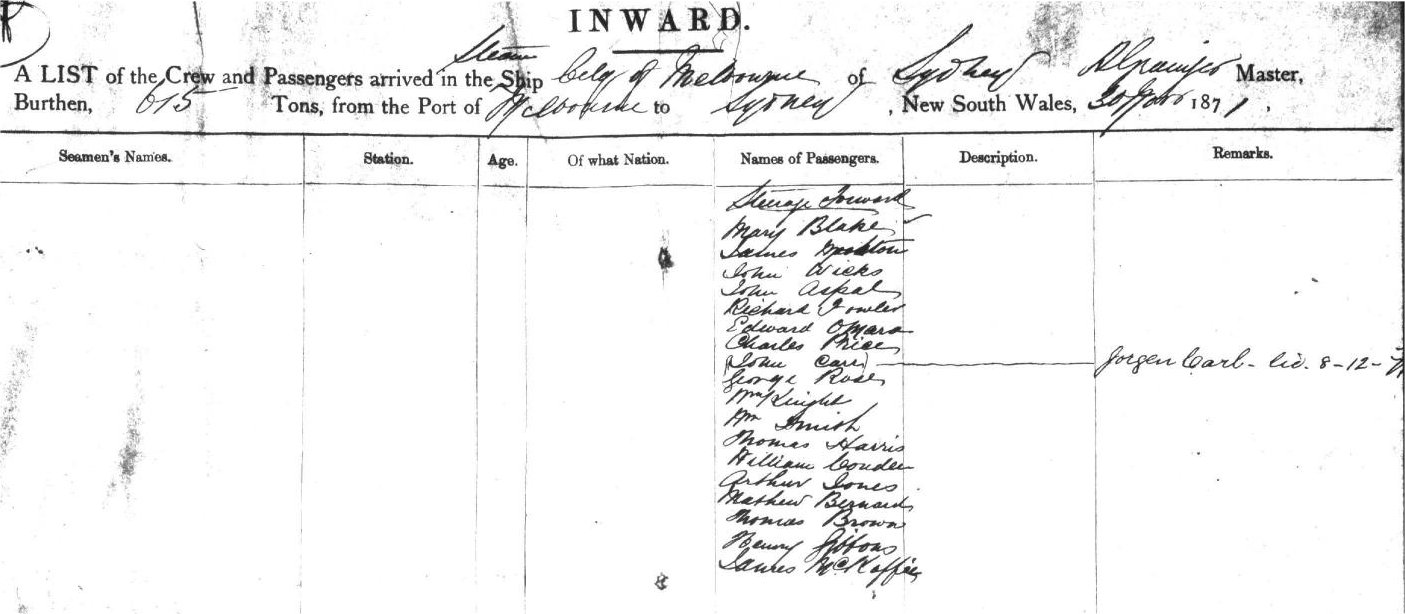 INWARD.
Steam
A LIST of the Crew and Passengers arrived in the Ship City of Melbourne of Sydney Master,
Burthen, 615 Tons, from the Port of Melbourne to Sydney, New South Wales, 30 1871,
Seamen's Names. Station. Age. Of what Nation. Names of Passengers. Description. Remarks.
Steerage Forward
Mary Blake
James
John Wicks
John Aspal
Richard Fowler
Edward OMara
Charles Price
(John Carl) Jorgen Carl - 8-12-
George Rose
Wm Knight
Wm Smith
Thomas Harris
William Couden
Arthur Jones
Mathew Bernard
Thomas Brown
Henry Gibbons
James McKaffie